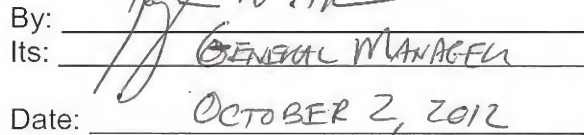 By:
Its: GENERAL MANAGER
Date: OCTOBER 2, 2012